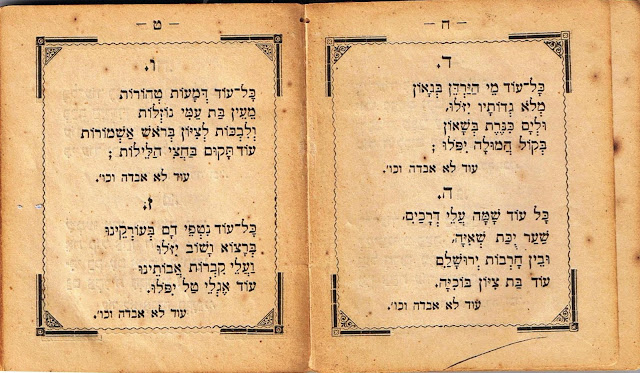 – ח –
ד.
כָּל־עוֹד מֵי הַיַּרְדֵּן בְּגָאוֹן
מְלֹא גְדוֹתָיו יִזֹּלוּ,
וּלְיָם כִּנֶּרֶת בְּשָׁאוֹן
בְּקוֹל הֲמוּלָה יִפֹּלוּ ;
עוד לא אבדה וכו׳.
ה.
כָּל עוֹד שָׁמָּה עֲלֵי דְרָכַיִם,
שַׁעַר יֻכַּת שְׁאִיָּה,
וּבֵין חָרְבוֹת יְרוּשָׁלַיִם
עוֹד בַּת צִיּוֹן בּוֹכִיָּה.
עוד לא אבדה וכו׳.
– ט –
ו.
כָּל־עוֹד דְּמָעוֹת טְהוֹרוֹת
מֵעֵין בַּת עַמִּי נוֹזְלוֹת
וְלִבְכּוֹת לְצִיּוֹן בְּרֹאשׁ אַשְׁמוֹרוֹת
עוֹד תָּקוּם בַּחֲצִי הַלֵּילוֹת ;
עוד לא אבדה וכו׳.
ז.
כָּל־עוֹד נִטְפֵי דָם בְּעוֹרְקֵינוּ
בְּרָצוֹא וָשׁוֹב יִזֹּלוּ
וַעֲלֵי קִבְרוֹת אֲבוֹתֵינוּ
עוֹד אֶגְלֵי טַל יִפֹּלוּ.
עוד לא אבדה וכו׳.